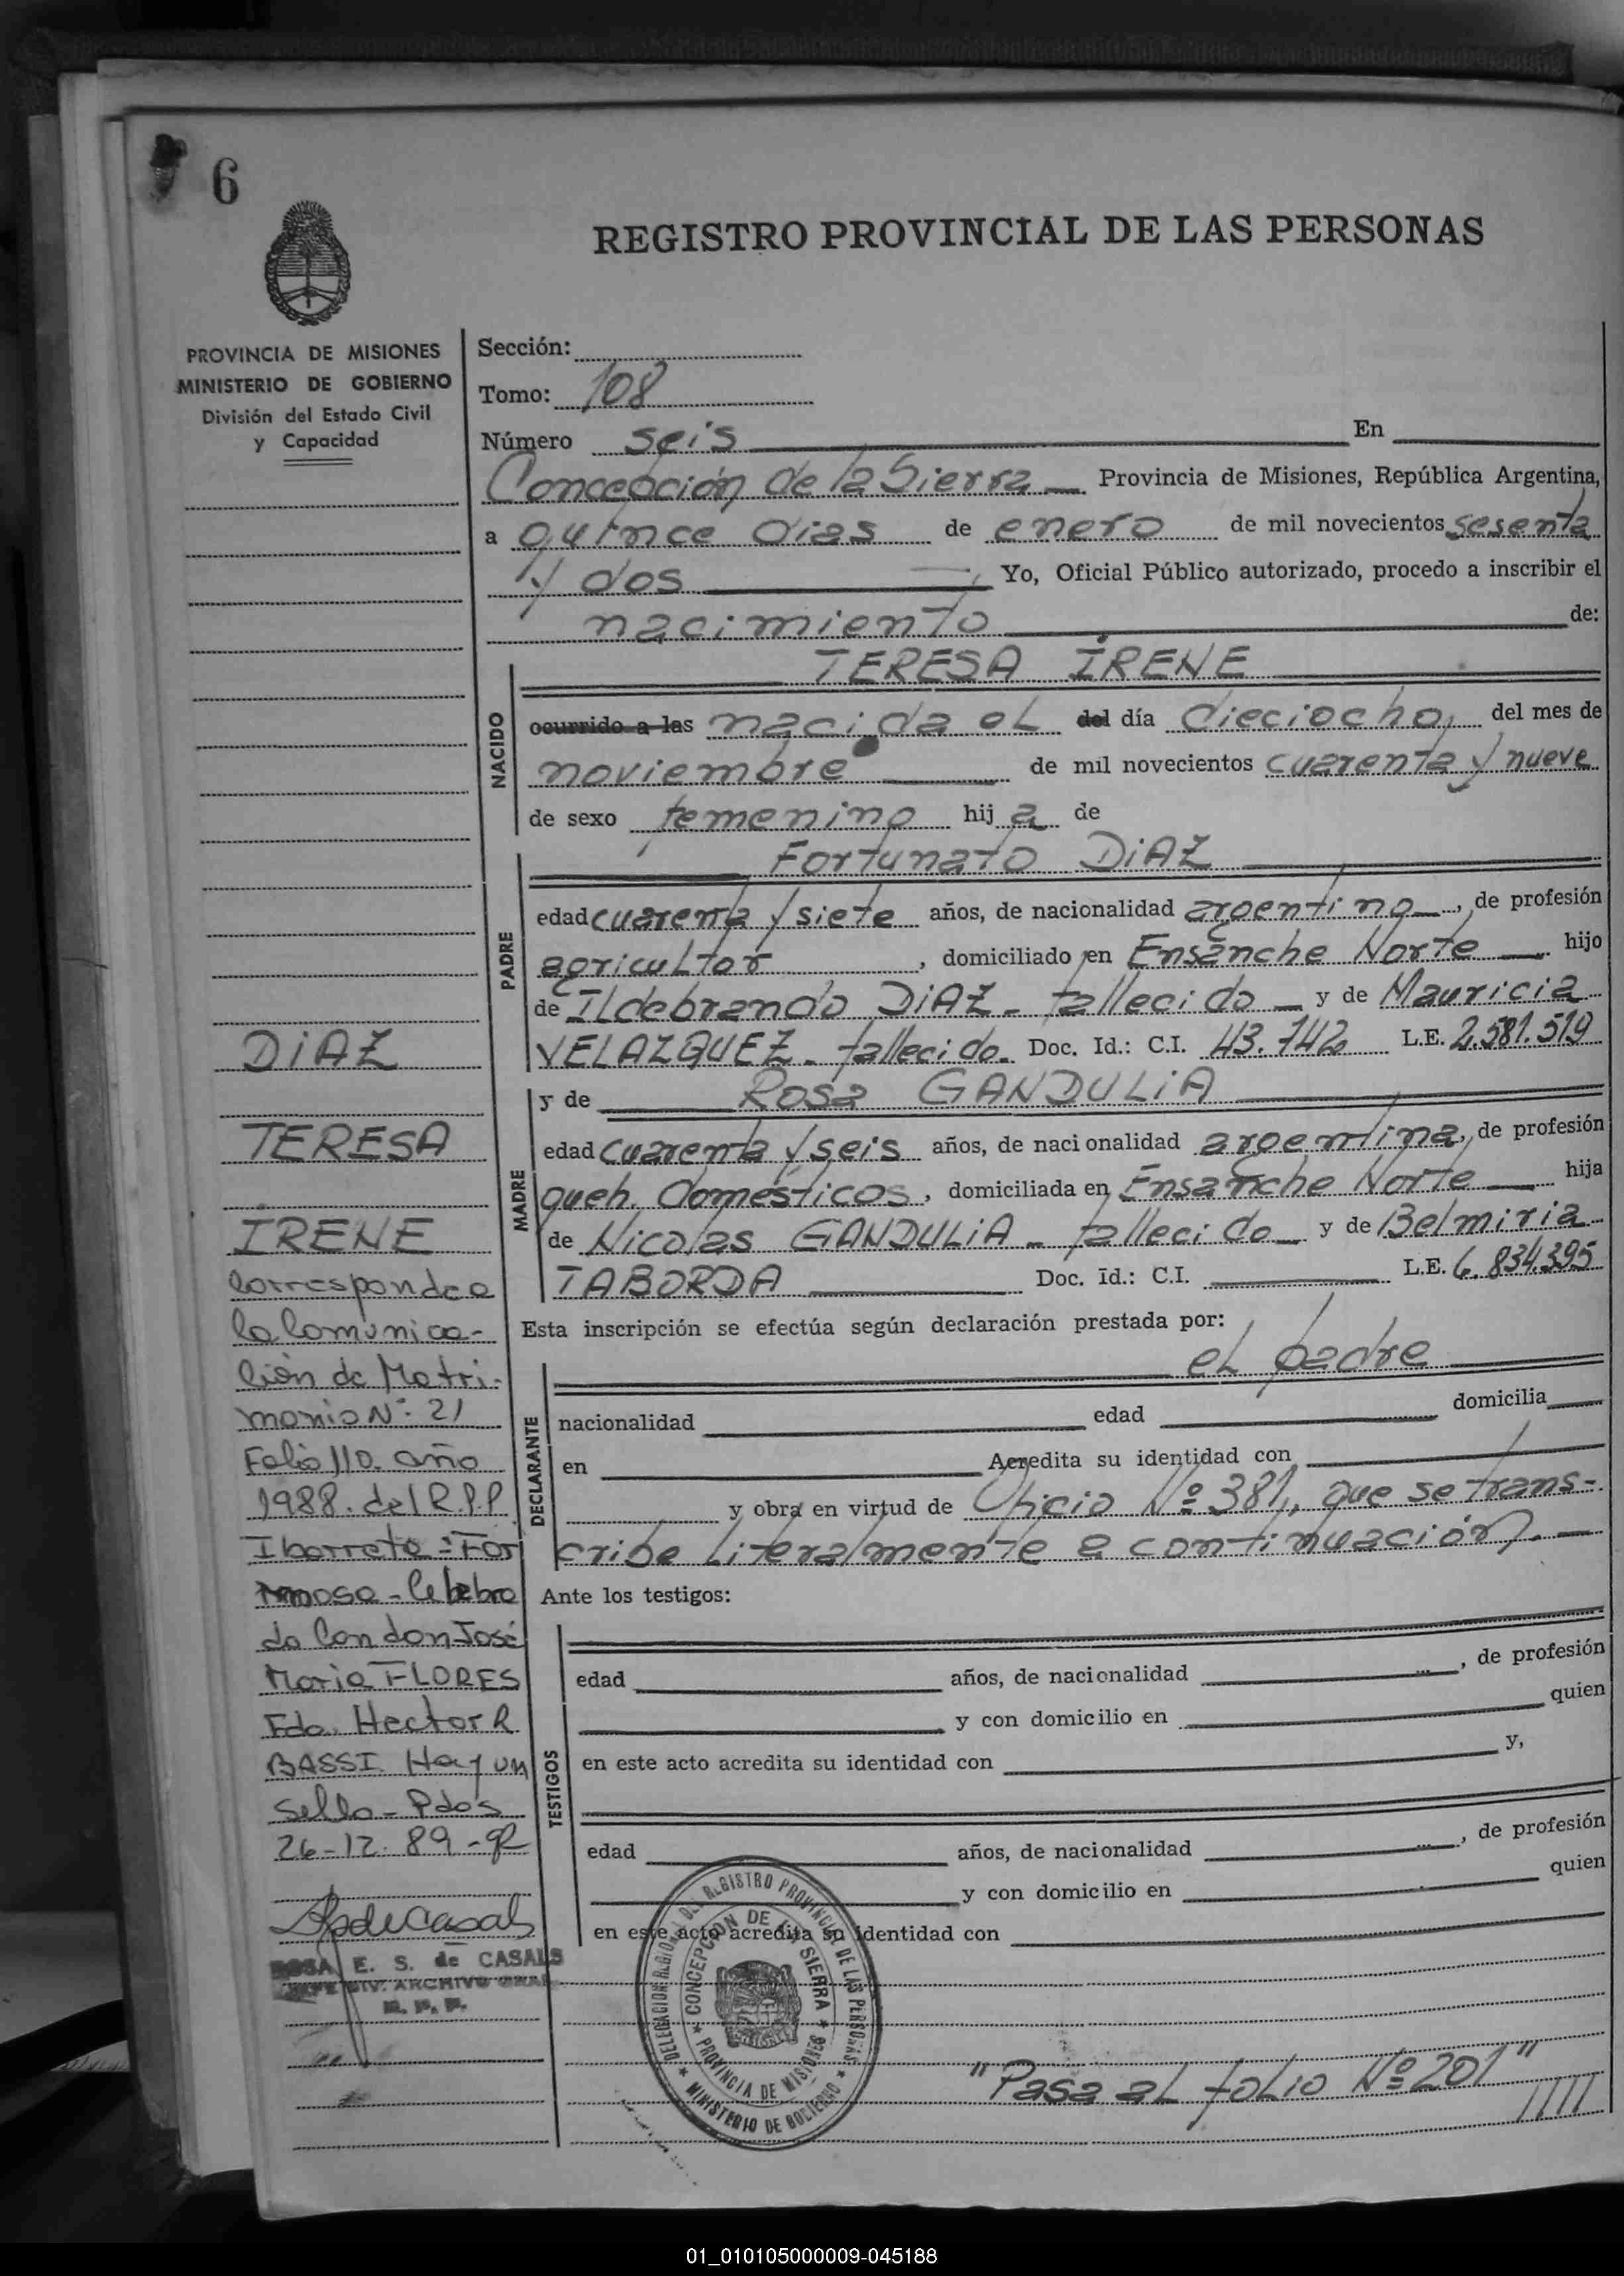 6
REGISTRO PROVINCIAL DE LAS PERSONAS
PROVINCIA DE MISIONES
MINISTERIO DE GOBIERNO
División del Estado Civil
y Capacidad
Sección:
Tomo: 108
Número seis En
Concepción de la Sierra Provincia de Misiones, República Argentina,
a quince dias de enero de mil novecientos sesenta
y dos Yo, Oficial Público autorizado, procedo a inscribir el
nacimiento de:
TERESA IRENE
NACIDO
ocurrido a las nacida el del día dieciocho, del mes de
noviembre de mil novecientos cuarenta y nueve
de sexo femenino hij a de
Fortunato DIAZ
PADRE
edad cuarenta y siete años, de nacionalidad argentino, de profesión
agricultor, domiciliado en Ensanche Norte hijo
de Ildebrando DIAZ - fallecido y de Mauricia
VELAZQUEZ - fallecido. Doc. Id.: C.I. 43.742 L.E. 2.581.519
y de Rosa GANDULIA
MADRE
edad cuarenta y seis años, de naci onalidad argentina, de profesión
queh. Domésticos, domiciliada en Ensanche Norte hija
de Nicolas GANDULIA - fallecido y de Belmiria
TABORDA Doc. Id.: C.I. L.E. 6.834.395
Esta inscripción se efectúa según declaración prestada por:
el padre
DECLARANTE
nacionalidad edad domicilia
en Acredita su identidad con
y obra en virtud de Oficio Nº 381, que se trans-
cribe literalmente a continuación.
Ante los testigos:
TESTIGOS
edad años, de nacionalidad , de profesión
y con domicilio en quien
en este acto acredita su identidad con y,
edad años, de nacionalidad , de profesión
y con domicilio en quien
en este acto acredita su identidad con
"Pasa al folio Nº 201"
DIAZ
TERESA
IRENE
Corresponde a
la Comunica-
ción de Matri-
monio Nº 21
Folio 110. año
1988. del R.P.P
Ibarreta - For
mosa - Celebra
do Con don José
Maria FLORES
Fdo. Hector R.
BASSI. Hay un
Sello - Pdos
26-12-89-
ROSA E. S. de CASALS
JEFE DIV. ARCHIVO GRAL
DELEGACION REGIONAL DEL REGISTRO PROVINCIAL DE LAS PERSONAS
MINISTERIO DE GOBIERNO
CONCEPCION DE LA SIERRA
PROVINCIA DE MISIONES
01_010105000009-045188